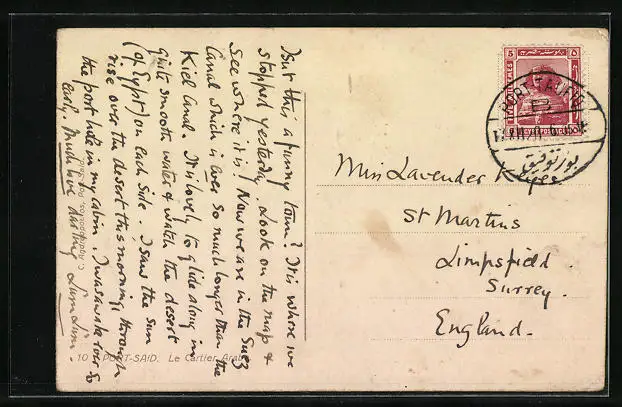 Isn't this a funny town? It is where we
stopped yesterday. Look on the map &
see where it is! Now we are in the Suez
Canal which is ever so much longer than the
Kiel Canal. It is lovely to glide along in
quite smooth water & watch the desert
(of Egypt) on each side. I saw the sun
rise over the desert this morning, through
the port hole in my cabin. I was awake so
early. Much love darling
10 PORT-SAID. Le Cartier Arabe
5
PORT TAUFIQ
بور توفيق
Miss Lavender Keyes
St Martins
Limpsfield
Surrey.
England.